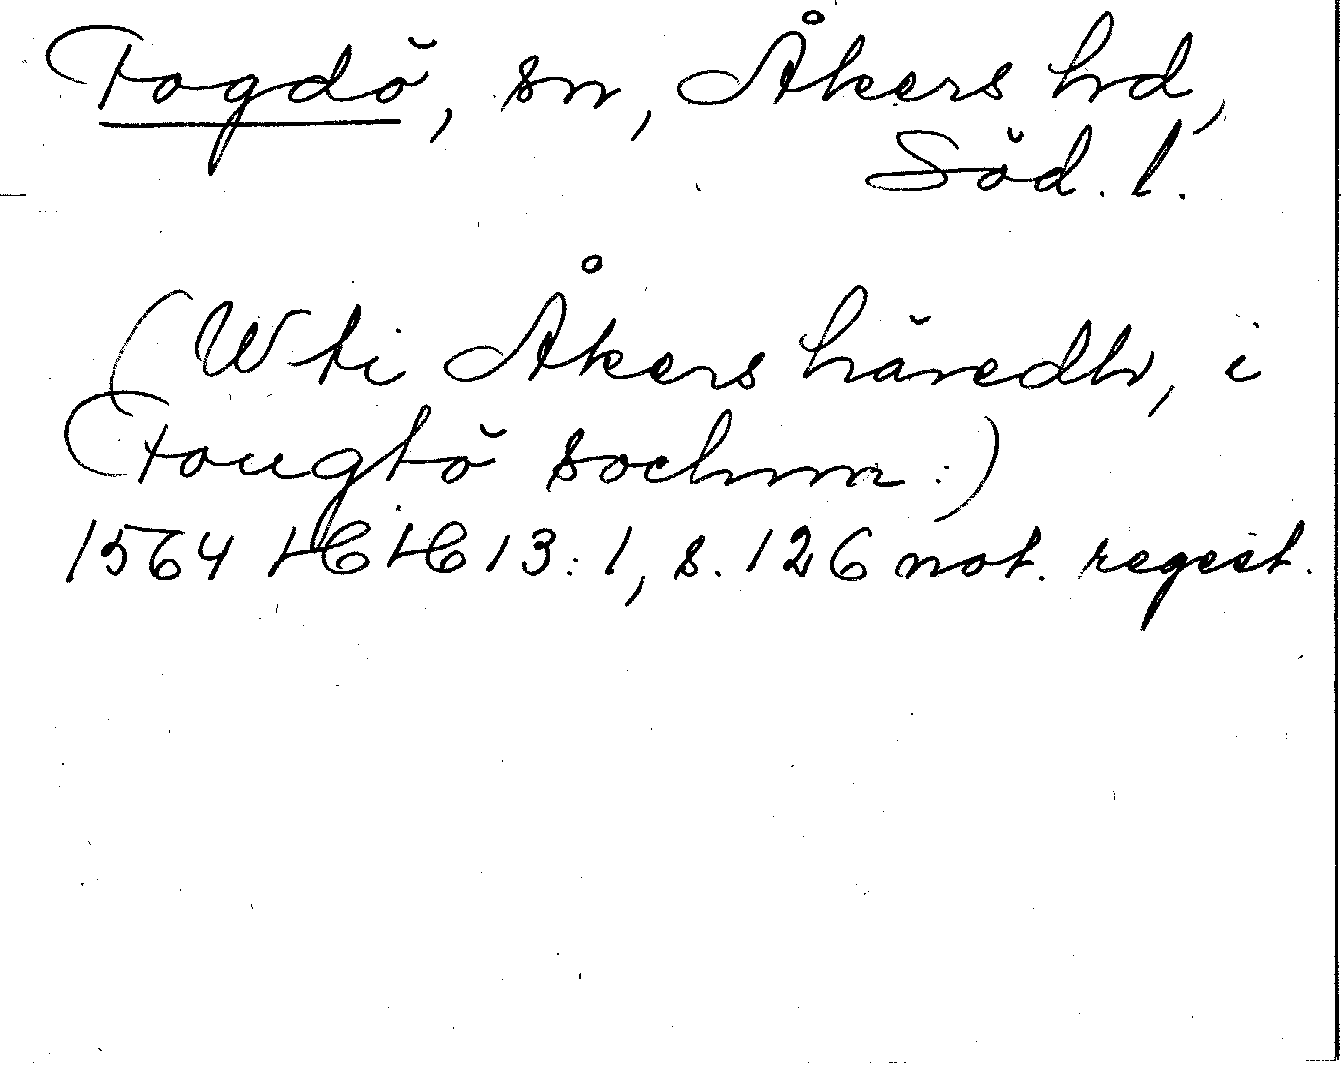 Fogdö, sn, Åkers hd,
Söd. l.
(Wti Åkers häredh, i
Fougtö sochnn:)
1564 HH 13:1, s. 126 not. regest.